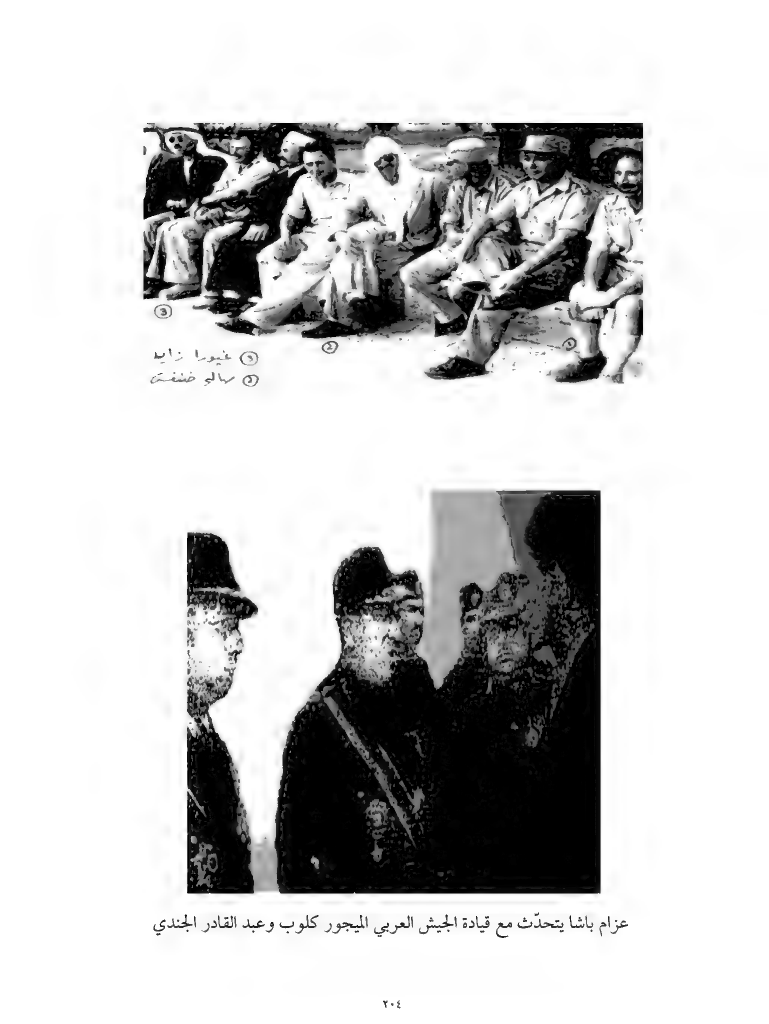 ③ ② ①
③ غيورا زايد
② صالح خنفس
عزام باشا يتحدّث مع قيادة الجيش العربي الميجور كلوب وعبد القادر الجندي
٢٠٤